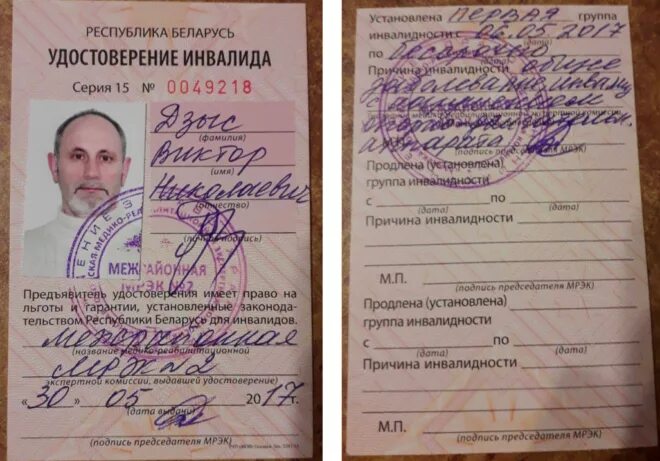 РЕСПУБЛИКА БЕЛАРУСЬ
УДОСТОВЕРЕНИЕ ИНВАЛИДА
Серия 15 № 0049218
Дзыс
(фамилия)
Виктор
(имя)
Николаевич
(отчество)
(личная подпись)
МЕЖРАЙОННАЯ
МРЭК №2
Предъявитель удостоверения имеет право на
льготы и гарантии, установленные законода-
тельством Республики Беларусь для инвалидов.
Межрайонная
(название медико-реабилитационной
МРЭК №2
экспертной комиссии, выдавшей удостоверение)
«30» 05 2017 г.
(дата выдачи)
(подпись председателя МРЭК)
Установлена первая группа
инвалидности с 06.05.2017
(дата)
по бессрочно
(дата)
Причина инвалидности общее
заболевание, инвалид
с
опорно-
аппарата
(подпись пред. МРЭК)
Продлена (установлена)
группа инвалидности
с по
(дата) (дата)
Причина инвалидности
М.П.
(подпись председателя МРЭК)
Продлена (установлена)
группа инвалидности
(дата)
с по
(дата)
Причина инвалидности
М.П.
(подпись председателя МРЭК)